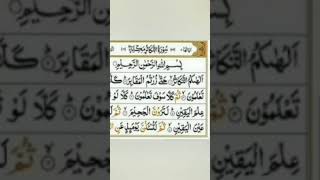 سُوْرَةُ التَّكَاثُرِ مَكِّيَّةٌ
بِسْمِ اللّٰهِ الرَّحْمٰنِ الرَّحِيْمِ
اَلْهٰىكُمُ التَّكَاثُرُ ۝ حَتّٰى زُرْتُمُ الْمَقَابِرَ ۝
تَعْلَمُوْنَ ۝ ثُمَّ كَلَّا سَوْفَ تَعْلَمُوْنَ ۝ كَلَّا لَوْ
عِلْمَ الْيَقِيْنِ ۝ لَتَرَوُنَّ الْجَحِيْمَ ۝ ثُمَّ
عَيْنَ الْيَقِيْنِ ۝ ثُمَّ لَتُسْئَلُنَّ يَوْمَئِذٍ عَنِ